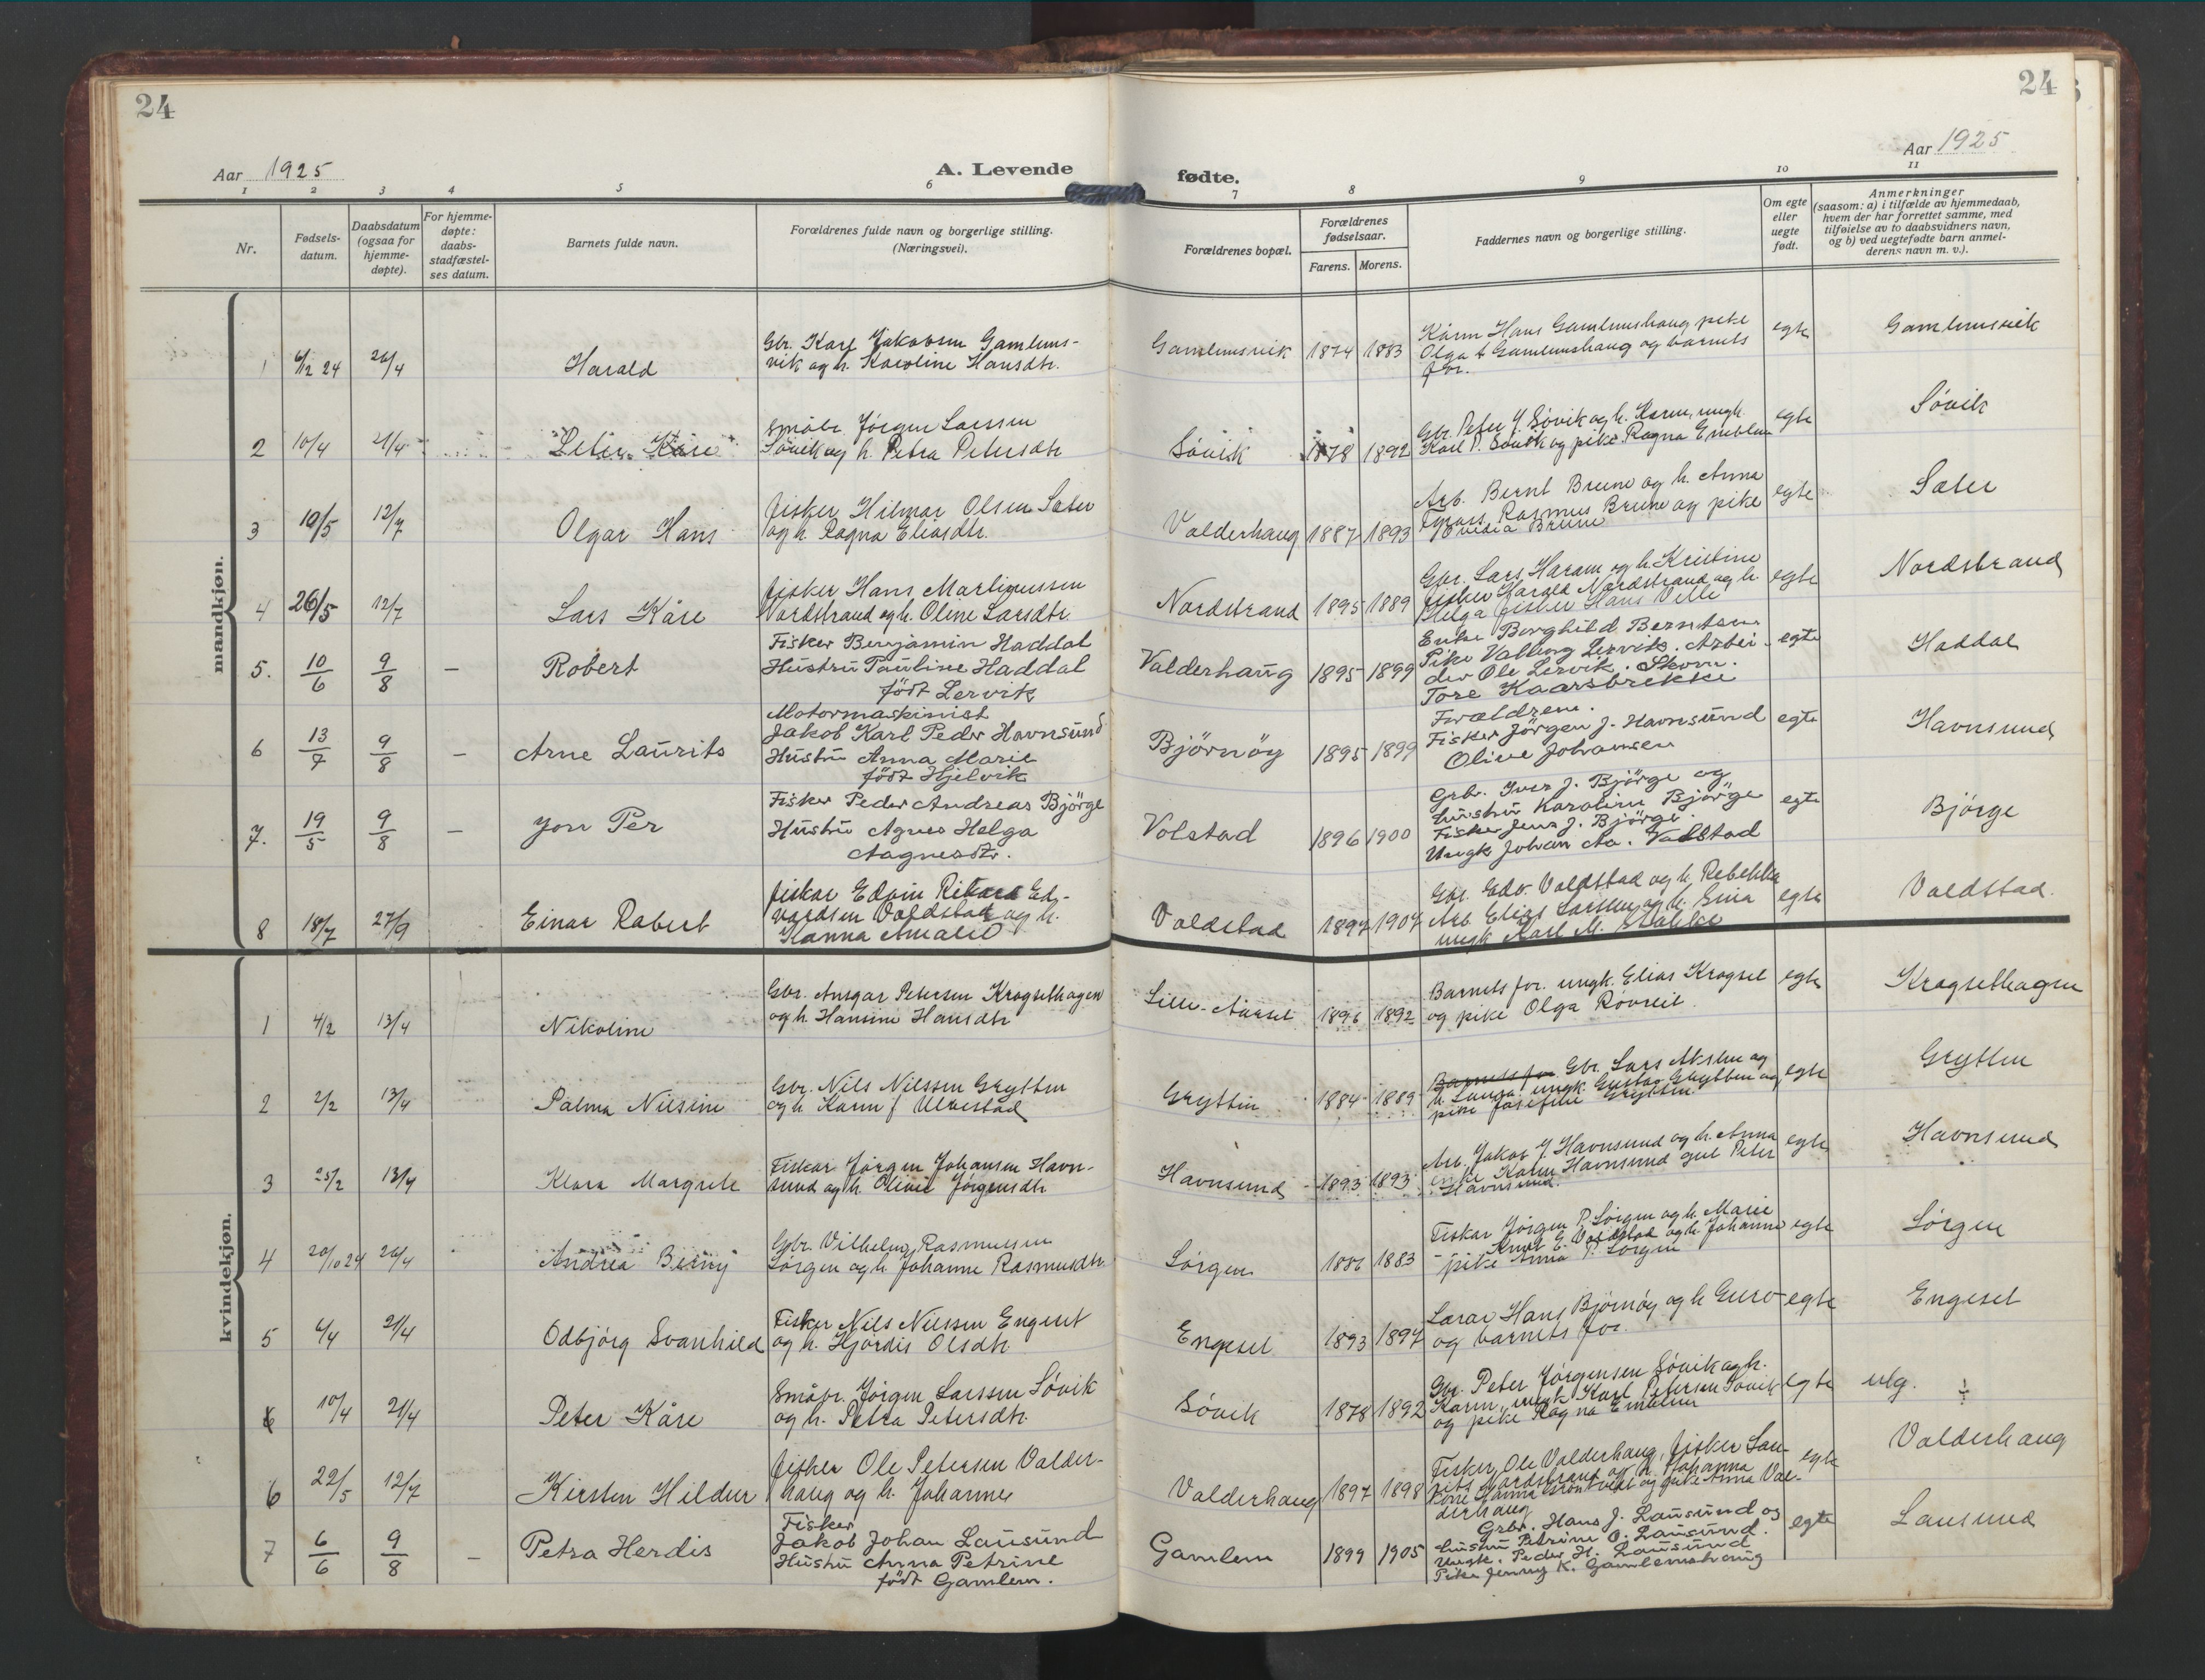 24
24
Aar 1925
A. Levende
fødte.
Aar 1925
1 2 3 4 5 6 7 8 9 10 11
Nr.
Fødsels-
datum.
Daabsdatum
(ogsaa for
hjemme-
døpte).
For hjemme-
døpte:
daabs-
stadfæstel-
ses datum.
Barnets fulde navn.
Forældrenes fulde navn og borgerlige stilling.
(Næringsvei).
Forældrenes bopæl.
Forældrenes
fødselsaar.
Farens. Morens.
Faddernes navn og borgerlige stilling.
Om egte
eller
uegte
født.
Anmerkninger
(saasom: a) i tilfælde av hjemmedaab,
hvem der har forrettet samme, med
tilføielse av to daabsvidners navn,
og b) ved uegtefødte barn anmel-
derens navn m. v.).
mandkjøn.
1 6/12 24 26/4 Harald
Gbr. Karl Jakobsen Gamlems-
vik og h. Karoline Hansdtr.
Gamlemsvik 1874 1883
Hans Gamlemshaug pike
Olga Gamlemshaug og barnets
for.
egte Gamlemsvik
2 10/4 21/4 Peter Kåre
Småbr Jörgen Larssen
Søvik og h. Petra Petersdtr
Søvik 1878 1892
Gbr. Peter J. Søvik og h. Karen, ungk.
Karl P. Søvik og pike Ragna Emblem
egte Søvik
3 10/5 12/7 Olgar Hans
fisker Hilmar Olsen Sæter
og h. Ragna Eliasdtr.
Valderhaug 1887 1893
Arb. Bernt Brune og h. Anna
Rasmus Brune og pike
Brune
egte Sæter
4 26/5 12/7 Lars Kåre
fisker Hans Martinussen
Nordstrand og h. Oline Larsdtr.
Nordstrand 1895 1889
Gbr. Lars Haram og h. Kristine
fisker Harald Nordstrand og h.
Helga fisker Hans Ville
egte Nordstrand
5. 10/6 9/8 — Robert
Fisker Benjamin Haddal
Hustru Pauline Haddal
født Lervik
Valderhaug 1895 1899
Enke Borghild Berntsen
Pike Valborg Lervik. Arbei-
der Ole Lervik. Skom.
Tore Kaarsbrekke
egte Haddal
6 13/7 9/8 — Arne Laurits
Motormaskinist
Jakob Karl Peder Havnsund
Hustru Anna Marie
født Hjelvik
Björnöy 1895 1899
Forældrene.
Fisker Jörgen J. Havnsund
Olive Johansen
egte Havnsund
7. 19/5 9/8 — Jon Per
Fisker Peder Andreas Björge
Hustru Agnes Helga
Aagnesdtr.
Volstad 1896 1900
Grb. Iver J. Björge og
hustru Karoline Björge
Fisker Jens J. Björge.
Ungk Johan Aa. Valstad
egte Bjørge
8 18/7 27/9 Einar Robert
fisker Edvin Rikard Ed-
vardsen Valdstad og h.
Hanna Amalie
Valdstad 1897 1907
Gbr. Edv. Valdstad og h. Rebekka
Arb. Elias Larssen og h. Gina
ungk Karl M.
egte Valdstad.
kvindekjøn.
1 4/2 13/4 Nikoline
Gbr. Ansgar Petersen Krogsethagen
og h. Hansine Hansdtr
Lille-Aurset 1896 1892
Barnets for. ungk. Elias Krogset
og pike Olga Rövreit
egte Krogsethagen
2 2/2 13/4 Palma Nilsine
Gbr. Nils Nilssen Grytten
og h Karen f Ulvestad
Grytten 1884 1889
Barnets for Gbr. Lars Akslen og
h. ungk. Gustav Grytten og
pike Josefine Grytten
egte Grytten
3 25/2 13/4 Klara Margrete
Fisker Jørgen Johansen Havn-
sund og h. Olive Jørgensdtr
Havnsund 1893 1893
Arb. Jakob J. Havnsund og h. Anna
enke Karen Havnsund gut Peter
Havnsund.
egte Havnsund
4 20/10 24 26/4 Andrea Berny
Gbr. Vilhelm Rasmussen
Sörgen og h. Johanne Rasmusdtr.
Sørgen 1886 1883
Fisker Jørgen P. Sørgen og h. Marie
- Knut E. Valdstad og h. Johanne
pike Anna P. Sørgen
egte Sørgen
5 6/4 21/4 Odbjörg Svanhild
Fisker Nils Nilssen Engeset
og h. Hjördis Olsdtr
Engeset 1893 1897
Lærar Hans Bjørnøy og h Guro
og barnets for.
egte Engeset
6 10/4 21/4 Peter Kåre
Småbr. Jörgen Larssen Søvik
og h. Petra Petersdtr.
Søvik 1878 1892
Gbr. Peter Jørgensen Søvik og h.
Karen, ungk Karl Petersen Søvik
og pike Ragna Emblem
egte utg. ÷
6 22/5 12/7 Kirsten Hildur
fisker Ole Petersen Valder-
haug og h. Johanne
Valderhaug 1897 1898
Fisker Ole Valderhaug, fisker Lau-
rits Nordstrand og h. Johanna
Kone Hanna Grøntvedt og pike Anna Val-
derhaug
egte Valderhaug
7 6/6 9/8 — Petra Herdis
Fisker
Jakob Johan Lausund
Hustru Anna Petrine
født Gamlem.
Gamlem 1899 1905
Grbr. Hans J. Lausund og
hustru Petrine O. Lausund.
Ungk. Peder H. Lausund
Pike Jenny K. Gamlemshaug
egte Lausund